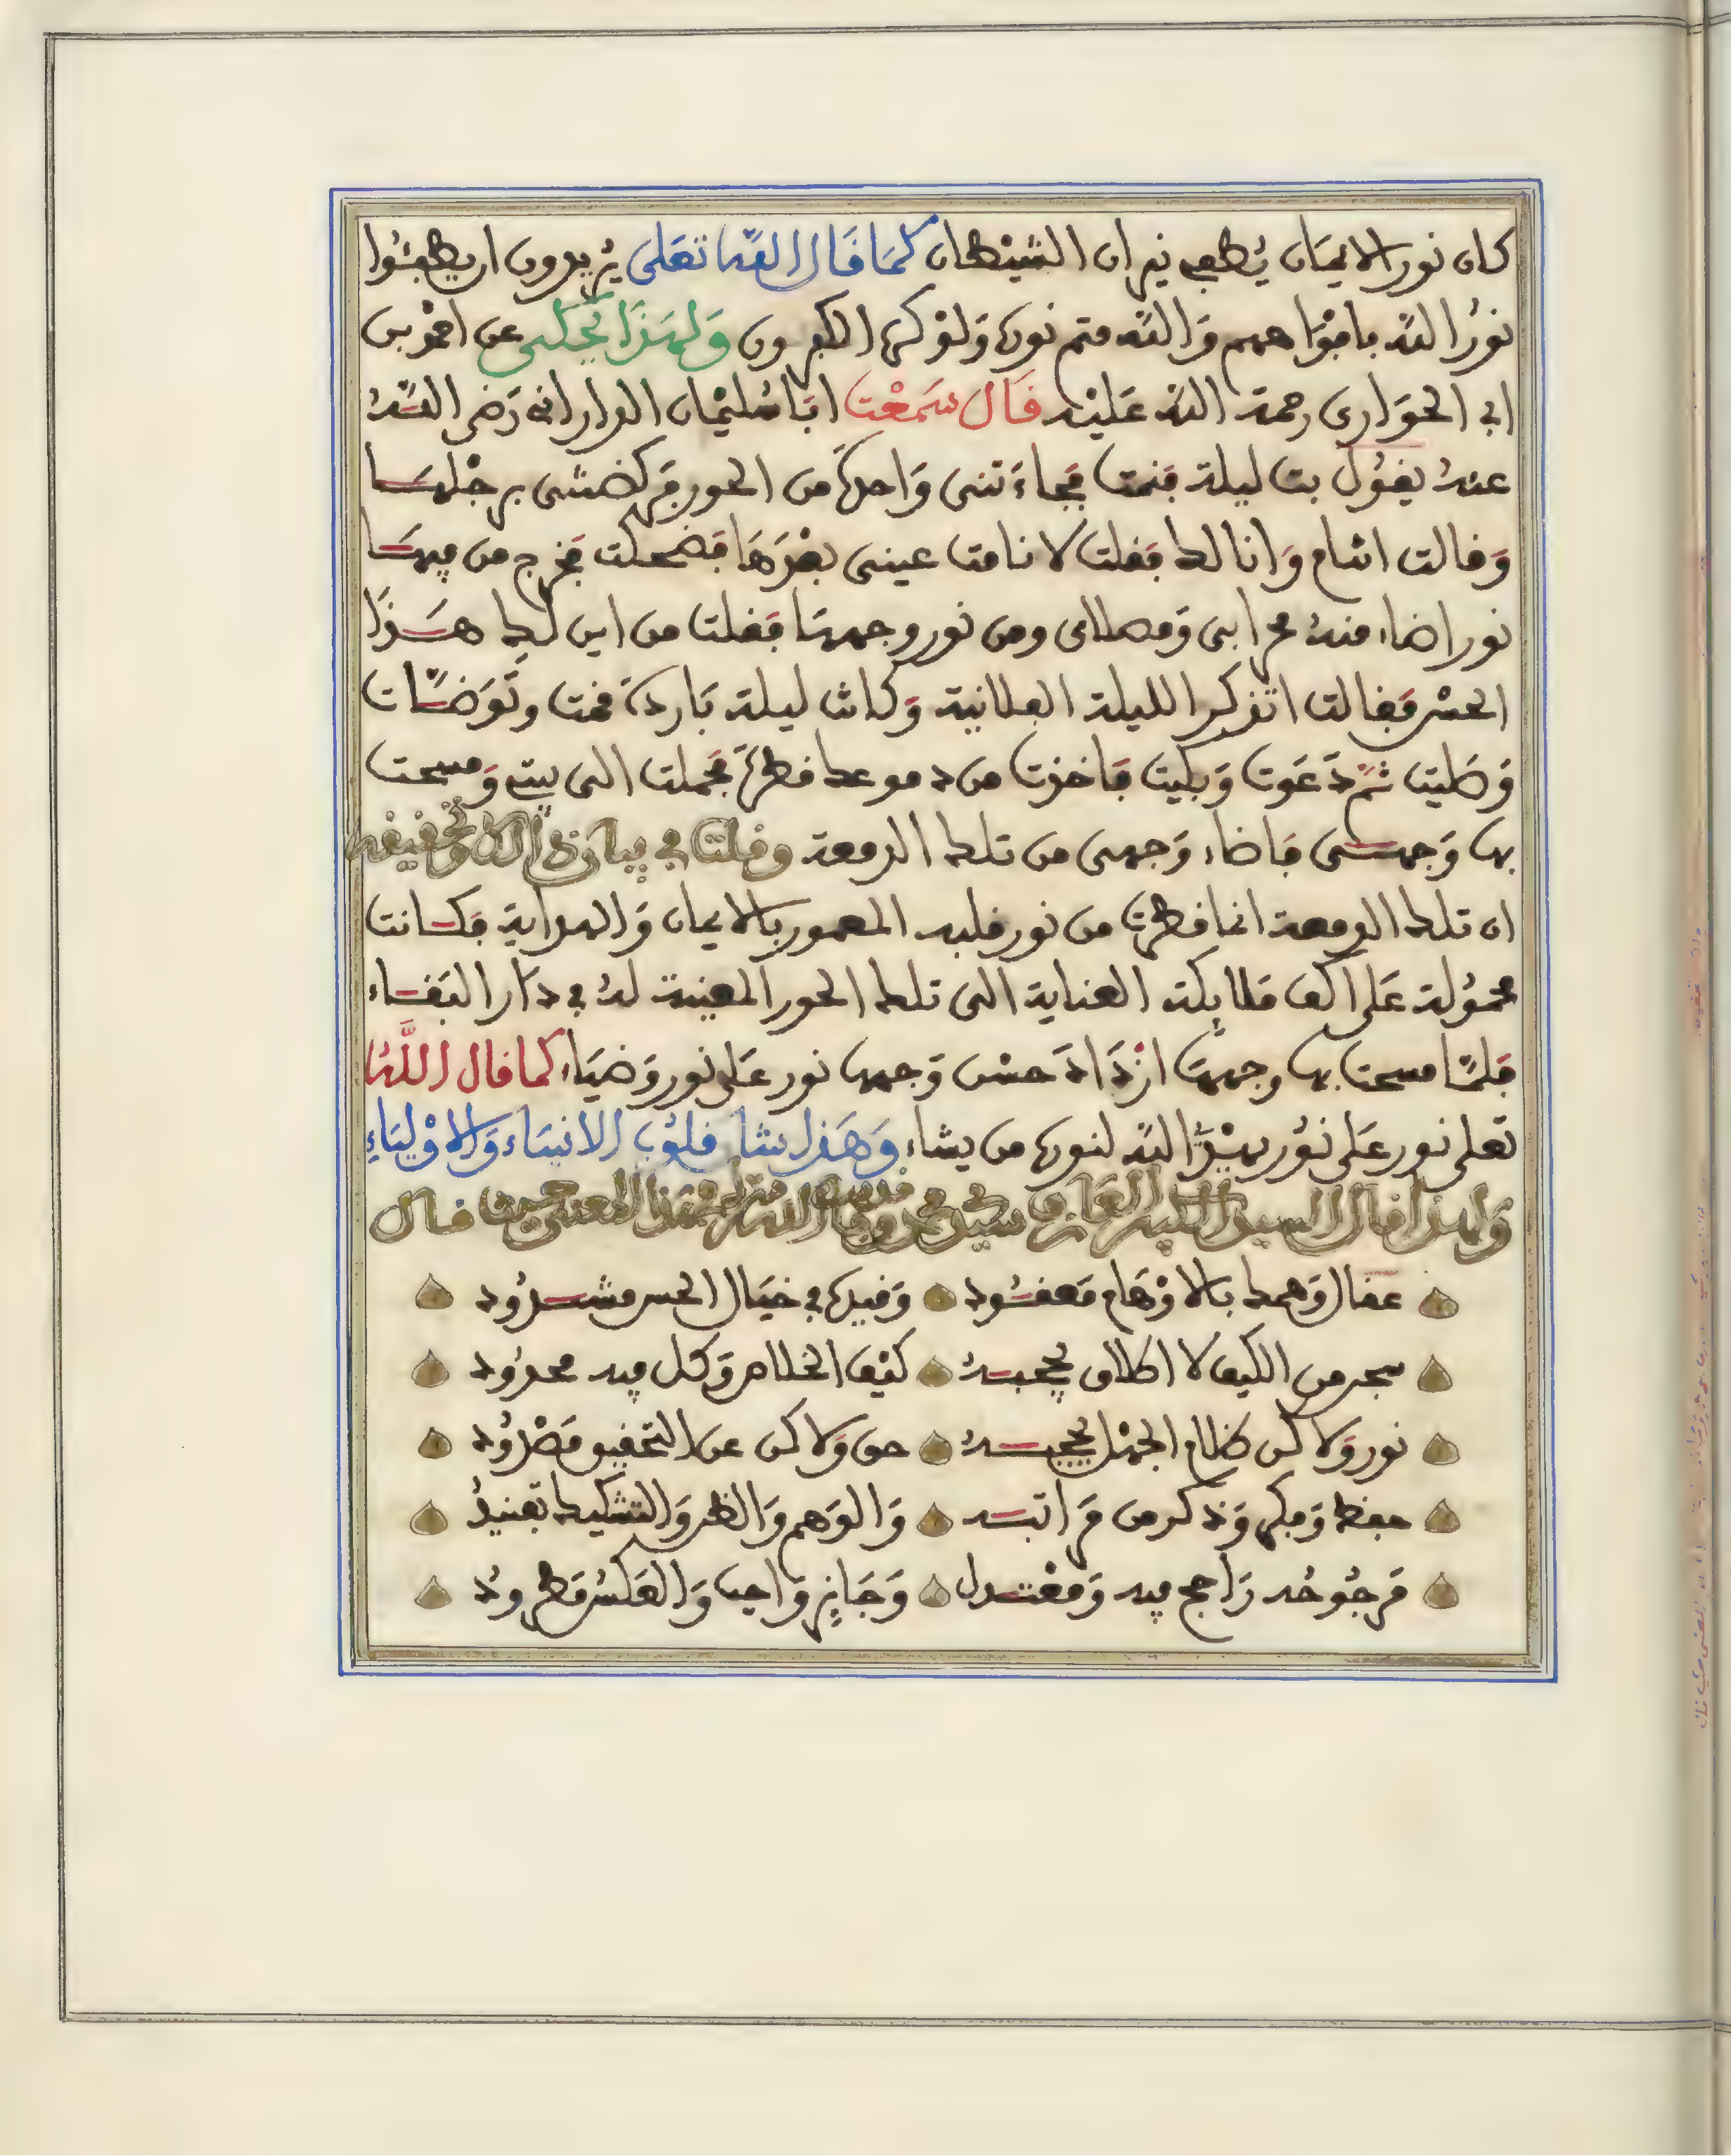 كان نور الايمان يُطفي نيران الشيْطان كمَا قَال الله تعَلى يُريدون ان يطفئُوا
نورُ الله بافوَاههم وَالله متم نوره وَلوْ كره الكفرون وَلهذَا يُحكى عن احمَد بن
ابي الحوَارى رحمة الله عَليْه قَال سَمعْت ابَا سُليْمان الدارانى رَضي اللهُ
عنهُ يقوُل بت ليلة فنمت فجاءَتنى وَاحدةٌ من الحور فركضتنى برجْلهَا
وَقالت اتنام وَانا لك فقلت لا نامت عينى بعْدَهَا فضحكت فخرج من فيهَا
نور اضاء منهُ محرابى وَمصلاى ومن نور وجههَا فقلت من اين لكِ هَذَا
الحسْن فقالت اتذكر الليلة الفلانية وَكانت ليلة بَاردة فقمت وتَوَضَّات
وَصَليت ثمَّ دَعَوت وَبكيت فاخذت من دموعك قطرَةً فحملت الى بيتي وَمسحت
بها وَجهى فاضاء وَجهى من تلك الدمعة وقلت في بيان
ان تلك الدمعة انما قطرت من نور قلبه المعمور بالايمان وَالهداية فكانت
محموُلة عَلى اكف ملايكة العناية الى تلك الحور المعينة لهُ في دَار البَقاء
فلمَّا مسحت بها وجههَا ازْدَادَ حسْن وَجهها نور عَلى نور وَضيَاء كما قال اللَّه
تعلى نور عَلى نوُر يهْدِ الله لنوره من يشاء وَهَذا شان قلوُب الانبيَاء وَالاوْليَاءِ
وَلهذا قال السيد العَارف سيدي محمد وفا لهذا المعنى حيث قال
عقال وَهمك بالاوْهَام مَعقوُد وَقيده في خيَال الحس مشدوُد
مجرد من الكيف لا اطلاق يحجبهُ كيْف الخلاص وَكل فيه محدوُد
نور وَلا كن ظلام الجهْل يحجبهُ حق وَلا كن عن التحقيق مَصْدوُد
حفظ وَفكر وَذكر من مَراتبه وَالوَهم وَالظن وَالتشكيك تفنيدُ
مَرجوُحُه رَاجح فيه وَمعْتدل وَجَايز وَاجب وَالعَكسُ مَطروُد